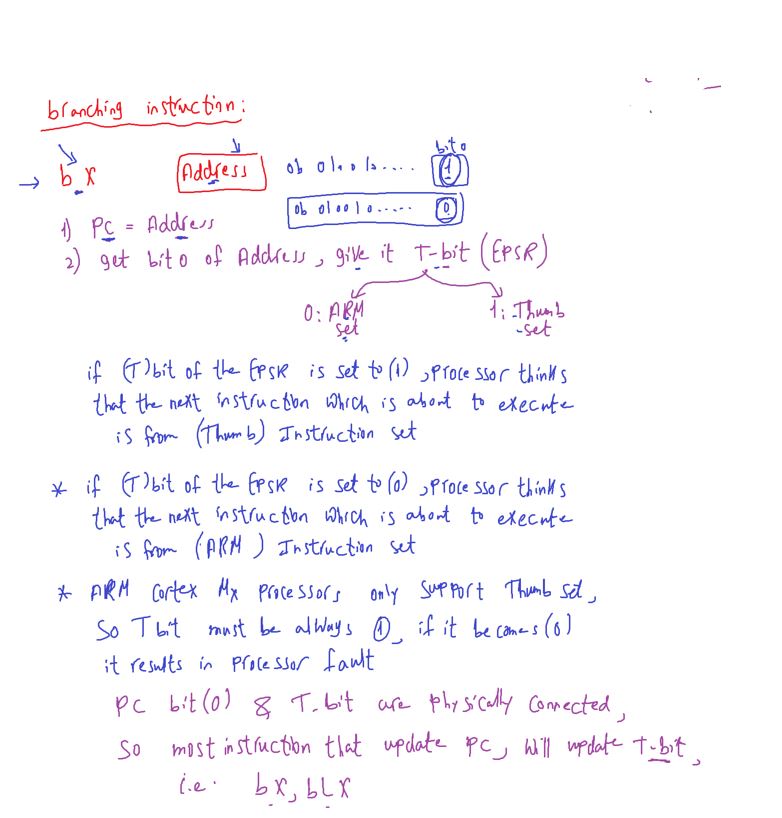 branching instruction:
bit 0
→ bx Address 0b 01001010..... 1
0b 010010..... 0
1) PC = Address
2) get bit 0 of Address, give it T-bit (EPSR)
0: ARM set
1: Thumb set
if (T)bit of the EPSR is set to (1), processor thinks
that the next instruction which is about to execute
is from (Thumb) Instruction set
* if (T)bit of the EPSR is set to (0), processor thinks
that the next instruction which is about to execute
is from (ARM) Instruction set
* ARM Cortex Mx processors only support Thumb set,
So T bit must be always 1, if it becomes (0)
it results in processor fault
PC bit(0) & T-bit are physically connected,
So most instruction that update PC, will update T-bit,
i.e. bx, bLX